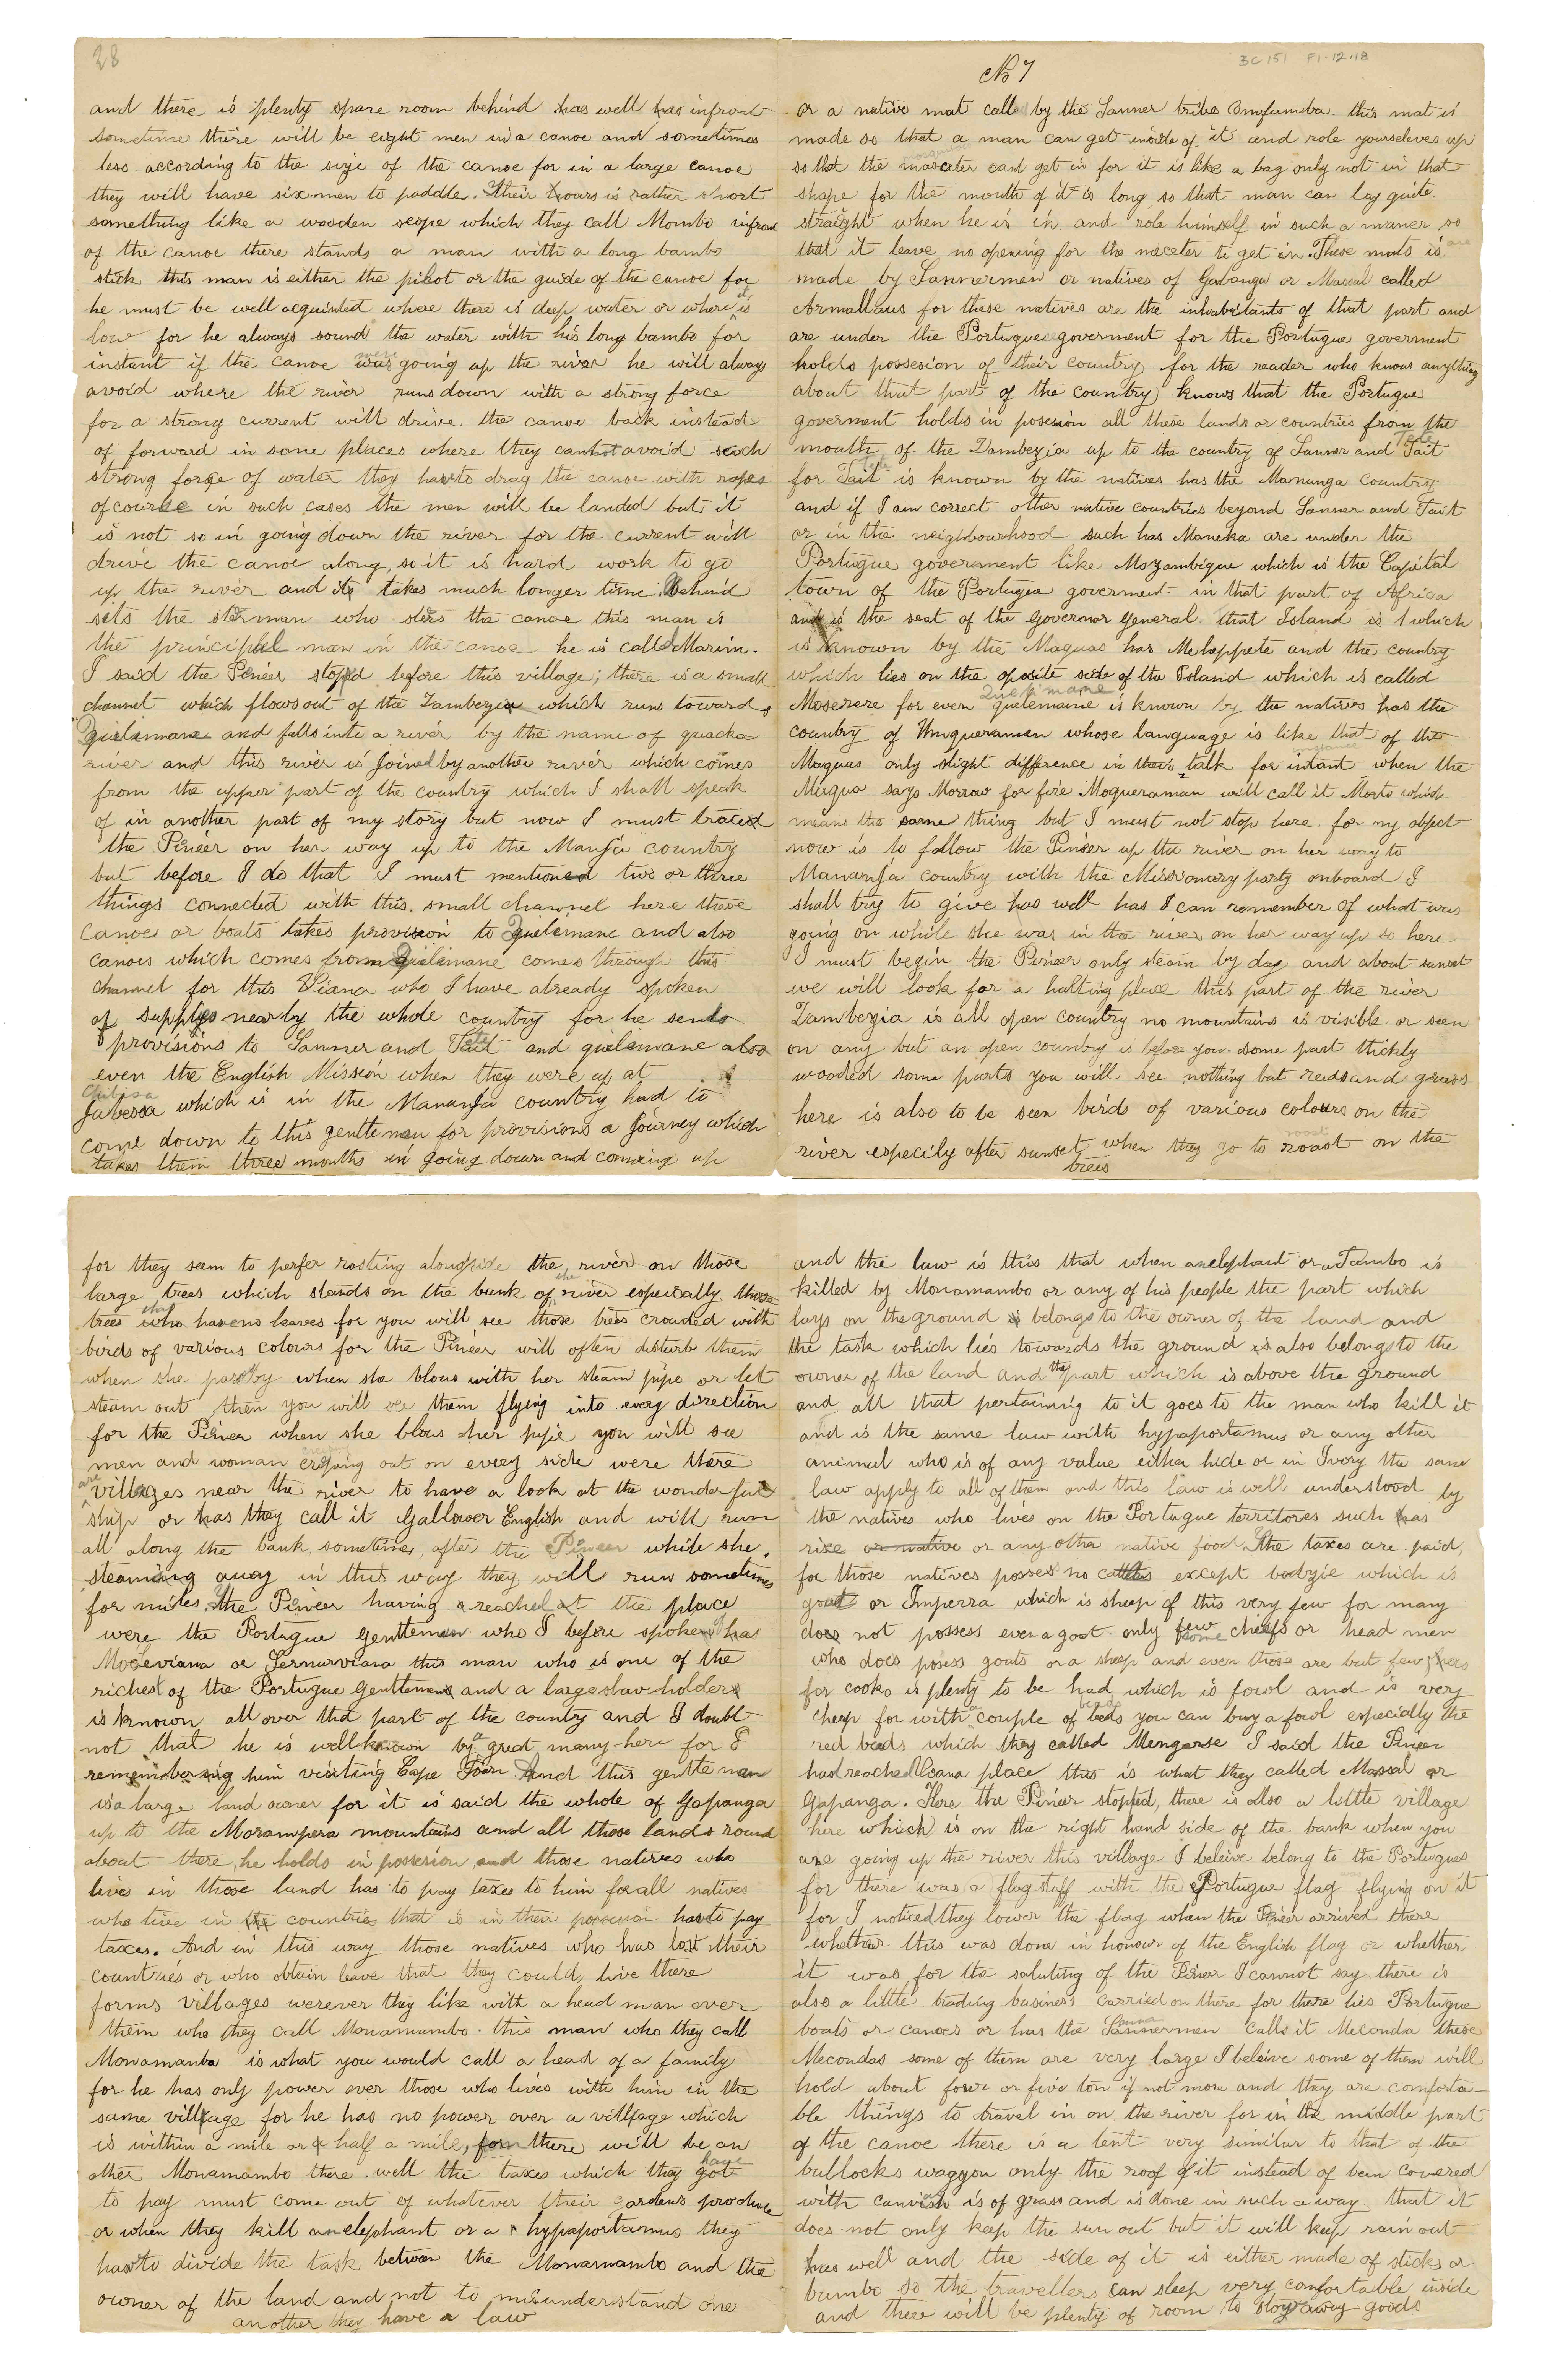 28
and there is plenty spare room behind has well has infront
sometimes there will be eight men in a canoe and sometimes
less according to the size of the canoe for in a large canoe
they will have six men to paddle. Their hoars is rather short
something like a wooden scope which they call Mombo infront
of the canoe there stands a man with a long bambo
stick this man is either the pilot or the guide of the canoe for
he must be well acquinted where there is deep water or where it is
low for he always sound the water with his long bambo for
instant if the canoe was going up the river he will always
avoid where the river runs down with a strong force
for a strong current will drive the canoe back instead
of forward in some places where they cannot avoid such
strong force of water they has to drag the canoe with ropes
of course in such cases the men will be landed but it
is not so in going down the river for the current will
drive the canoe along, so it is hard work to go
up the river and it takes much longer time. Behind
sits the sterman who sters the canoe this man is
the principal man in the canoe he is called Marim.
I said the Pineer stoped before this village; there is a small
channel which flows out of the Zambezia which runs towards
Quelimane and falls into a river by the name of quacka
river and this river is joined by another river which comes
from the upper part of the country which I shall speak
of in another part of my story but now I must traced
the Pineer on her way up to the Manga country
but before I do that I must mentioned two or three
things connected with this. small channel here these
canoes or boats takes provision to Quielimane and also
canoes which comes from Quielimane comes through this
channel for this Viana who I have already spoken
of supplys nearly the whole country for he sends
provisions to Sanner and Tait Tete and quelimane also
even the English Mission when they were up at
Chibisa
Jabessa which is in the Mananja country had to
come down to this gentleman for provisions a Journey which
takes them three months in going down and comeing up
No 7
3C 151 F1.12.18
or a native mat called by the Sanner tribe Omfumba. this mat is
made so that a man can get inside of it and role yourseleves up
so that the masceter cant get in for it is like a bag only not in that
shape for the mouth of it is long so that man can lay quite
straight when he is in and role himself in such a maner so
that it leave no opening for the meceter to get in. These mats is are
made by Sannermen or natives of Gabanga or Massal called
Armallaus for these natives are the inhabitants of that part and
are under the Portugue goverment for the Portugue goverment
holds possesion of their country for the reader who knows anything
about that part of the country knows that the Portugue
goverment holds in posesion all these lands or countries from the
mouth of the Zambezia up to the country of Sanner and Tait Tete
for Tait is known by the natives has the Manunga country
and if I am correct other native countries beyond Sanner and Tait
or in the neighbourhood such has Maneka are under the
Portugue government like Mozambique which is the Capital
town of the Portugue goverment in that part of Africa
and is the seat of the Governor General. that Island is 1 which
is known by the Maguas has Mehappete and the country
which lies on the oposite side of the Island which is called
Quelimane
Moserere for even quelemaine is known by the natives has the
country of Mugueramen whose language is like that of the
Maguas only slight difference in their talk for intant when the
Magua says Morrow for fire Mogueraman will call it Morto which
means the same thing but I must not stop here for my object
now is to follow the Pineer up the river on her way to
Mananja country with the Missionary party onboard I
shall try to give has well has I can remember of what was
going on while she was in the river on her way up so here
I must begin the Pineer only steam by day and about sunset
we will look for a halting place this part of the river
Zambezia is all open country no mountains is visible or seen
on any but an open country is before you. some part thickly
wooded some parts you will see nothing but reeds and grass
here is also to be seen birds of various colours on the
river especily after sunset when they go to roast on the
trees
for they seem to perfer rosting alongside the river on those
large trees which stands on the bank of the river especially those
trees who has no leaves for you will see those trees crouded with
birds of various colours for the Pineer will often disturb them
when she pass by when she blous with her steam pipe or let
steam out then you will see them flying into every direction
for the Pineer when she blous her pipe you will see
men and woman creping out on every side were there
are villages near the river to have a look at the wonderful
ship or has they call it Gallower English and will run
all along the bank sometimes, after the Pineer while she.
steaming away in this way they will run sometimes
for miles. The Pineer having reached at the place
were the Portugue Gentlemen who I before spoken of has
Moseviana or Sernurviana this man who is one of the
richest of the Portugue gentlemens and a large slave holders
is known all over that part of the country and I doubt
not that he is well known by a great many here for I
remembering him visiting Cape Town. And this gentleman
is a large land owner for it is said the whole of Gapanga
up to the Morampera mountains and all those lands round
about there, he holds in possesion and those natives who
lives in those land has to pay taxes to him for all natives
who live in the countries that is in their possesion has to pay
taxes. And in this way those natives who has lost their
countries or who obtain leave that they could, live there
forms villages werever they like with a head man over
them who they call Monamambo. this man who they call
Monamambo is what you would call a head of a family
for he has only power over those who lives with him in the
same village for he has no power over a village which
is within a mile or half a mile, for there will be an
other Monamambo there. well the taxes which they got have
to pay must come out of whatever their gardens produce
or when they kill an elephant or a hypaportamus they
has to divide the task between the Monamambo and the
owner of the land and not to misunderstand one
another they have a law
and the law is this that when an elephant or a Jambo is
killed by Monamambo or any of his people the part which
lays on the ground is belongs to the owner of the land and
the task which lies towards the ground is also belongs to the
owner of the land and the part which is above the ground
and all that pertaining to it goes to the man who kill it
and is the same law with hypaportamus or any other
animal who is of any value either hide or in Ivory the same
law apply to all of them and this law is well understood by
the natives who lives on the Portugue territores such has
rixe or native or any other native food. The taxes are paid,
for those natives posses no cattles except bodzie which is
goat or Imperra which is sheep of this very few for many
does not possess even a goat only few some cheifs or head men
who does posess goats or a sheep and even those are but few has
for cooks is plenty to be had which is fowl and is very
cheep for with a couple of beds beads you can buy a fowl especially the
red beeds which they called Mengarse I said the Pineer
had reached Viana place this is what they called Massal or
Gapanga. Here the Pineer stopted, there is allso a little village
here which is on the right hand side of the bank when you
are going up the river this village I beleive belong to the Portugues
for there was a flag staff with the Portugue flag flying on it
for I noticed they lower the flag when the Pineer arrived there
whether this was done in honour of the English flag or whether
it was for the saluting of the Pineer I cannot say. there is
also a little trading business carried on there for there lies Portugue
boats or canoes or has the Sannermen calls it Meconda these
Mecondas some of them are very large I beleive some of them will
hold about four or five ton if not more and they are comforta-
ble things to travel in on the river for in the middle part
of the canoe there is a tent very similar to that of the
bullocks waggon only the roof of it instead of been covered
with canvish is of grass and is done in such a way that it
does not only keep the sun out but it will keep rain out
has well and the side of it is either made of sticks or
bambo so the travellers can sleep very comfortable inside
and there will be plenty of room to stoy away goods